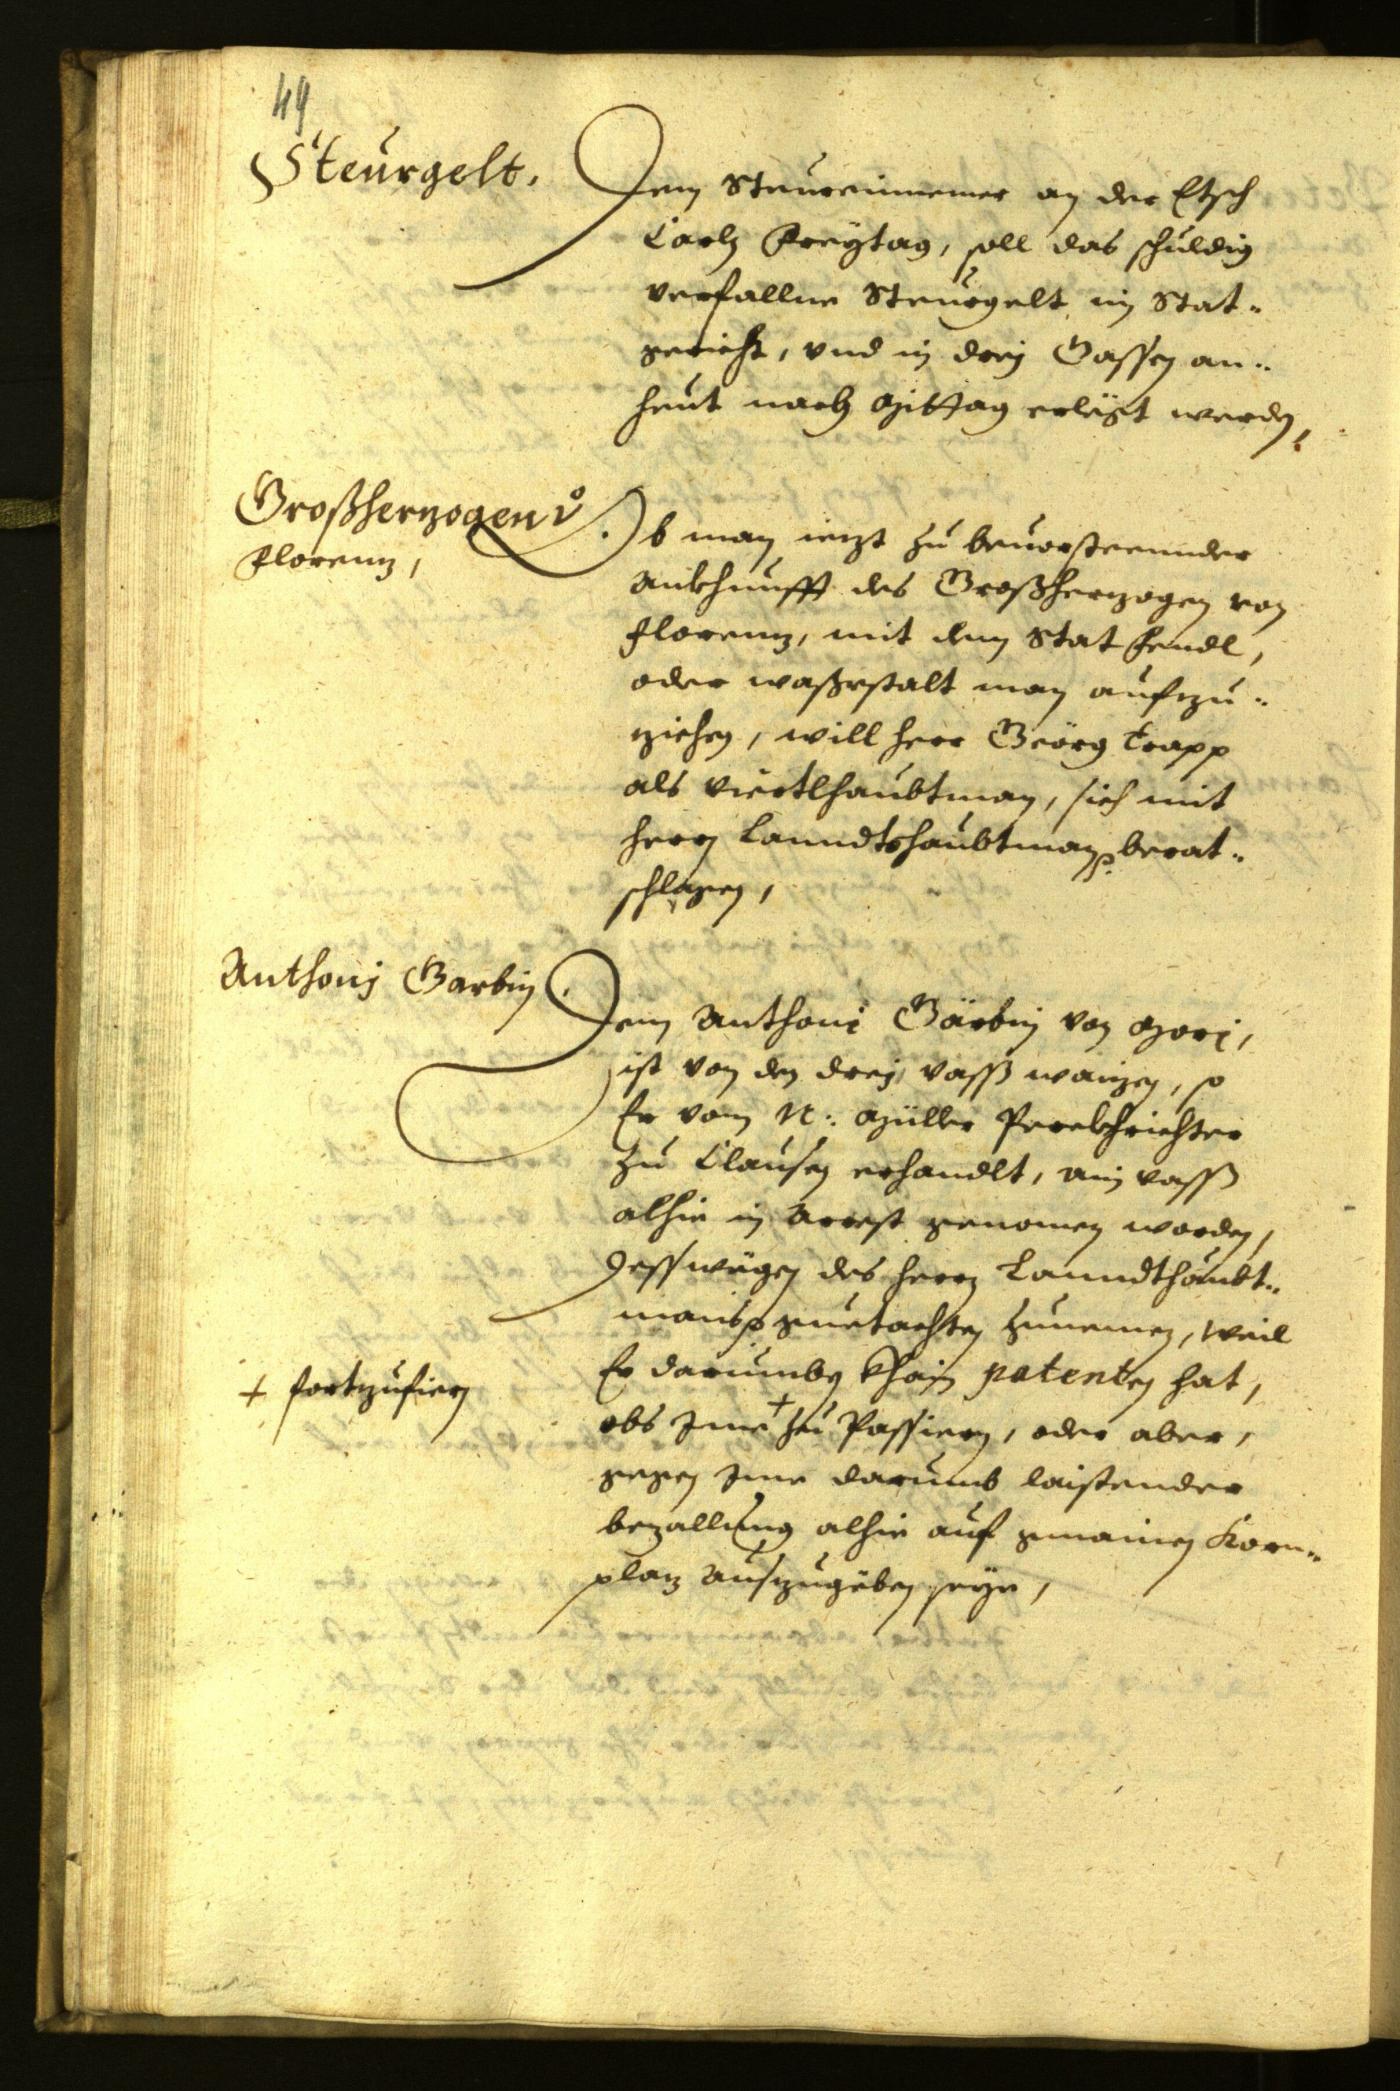 49
Steurgelt.
Dem Steureinnemer an der Etsch
Carln Freÿtag, soll das schuldig
verfallne Steurgelt im Stat-
gericht, vnd in dreÿ Gassen an-
heut nach Mittag erlegt werden,
Großherzogen vo
Florenz,
Ob man ietzt zu beuorsteennder
Ankhunfft des Großherzogen von
Florenz, mit dem Stat Fendl,
oder waßgstalt man aufzu-
ziehen, will herr Geörg Trapp
als Viertlhaubtman, sich mit
herrn Lanndtshaubtman p. berat-
schlagen,
Anthonj Garbin.
Dem Anthoni Gärbin von Morj,
ist von den dreÿ vass waizen, so
Er vom N: Müller Perckhrichter
zu Clausen erhandlt, ain vass
alhie in Arrest genomen worden,
Desswegen des herrn Lanndthaubt-
mans p guetachten zunemen, weil
Er darumben khain patenten hat,
+ fortzufiern
obs Jme + zu Passiern, oder aber,
gegen Jme darumb laistender
bezallung alhie auf gmainen Korn-
plaz auszugeben seÿe,